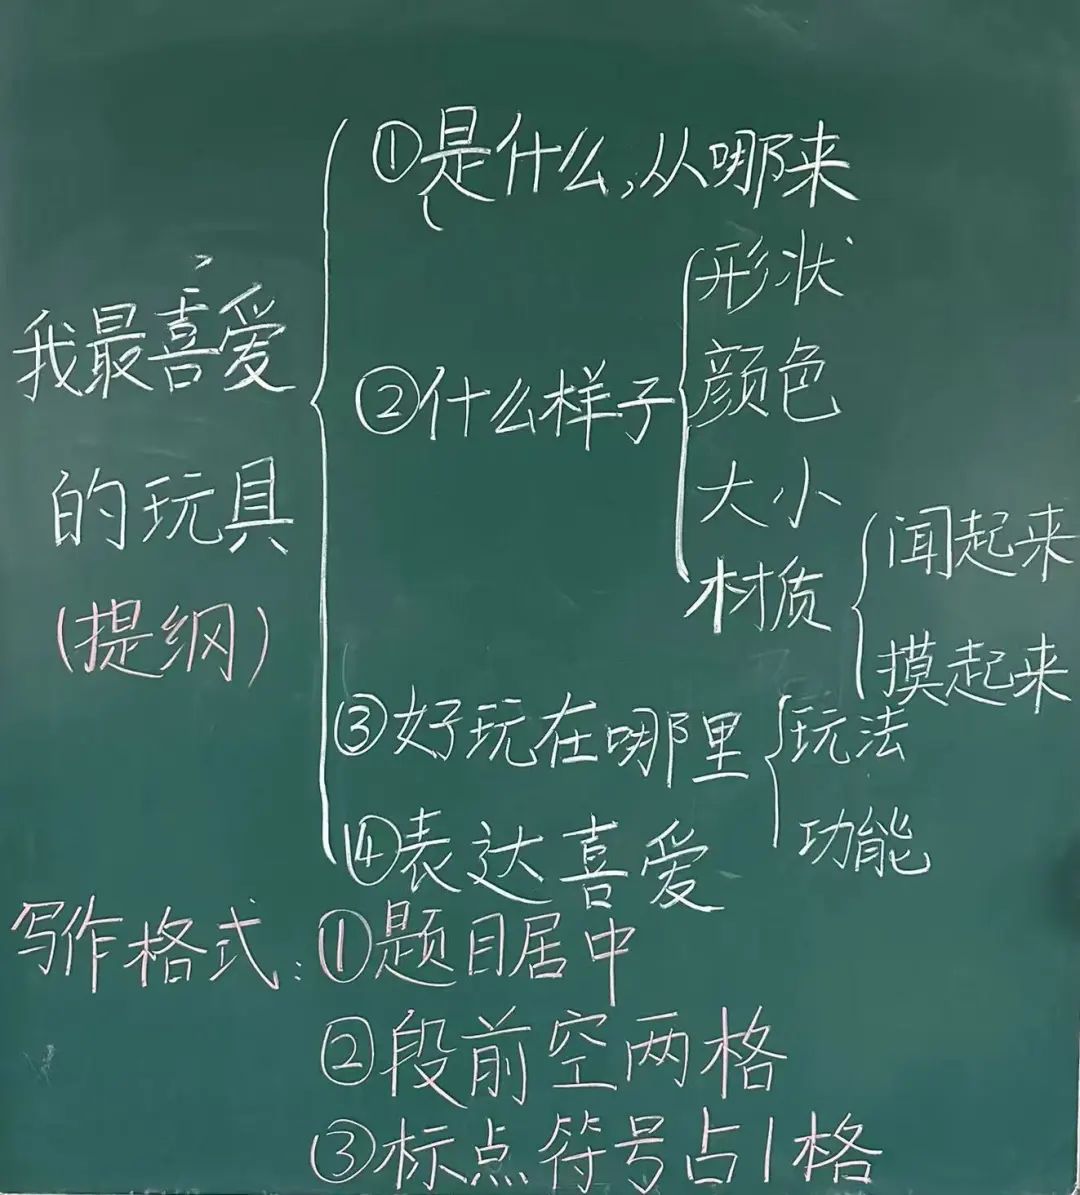 我最喜爱
的玩具
(提纲)
①是什么,从哪来
②什么样子
形状
颜色
大小
材质
闻起来
摸起来
③好玩在哪里
玩法
功能
④表达喜爱
写作格式:①题目居中
②段前空两格
③标点符号占1格